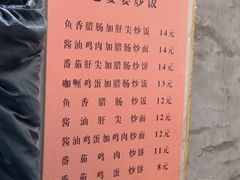 婆婆炒饭
鱼香腊肠加肝尖炒饭 14元
酱油鸡肉加肝尖炒面 14元
番茄肝尖加腊肠炒饭 14元
咖喱鸡蛋加腊肠炒饭 13元
鱼香腊肠炒饭 12元
酱油鸡蛋加腊肠炒面 12元
番茄鸡肉炒饼 11元
番茄鸡蛋炒饼 8元